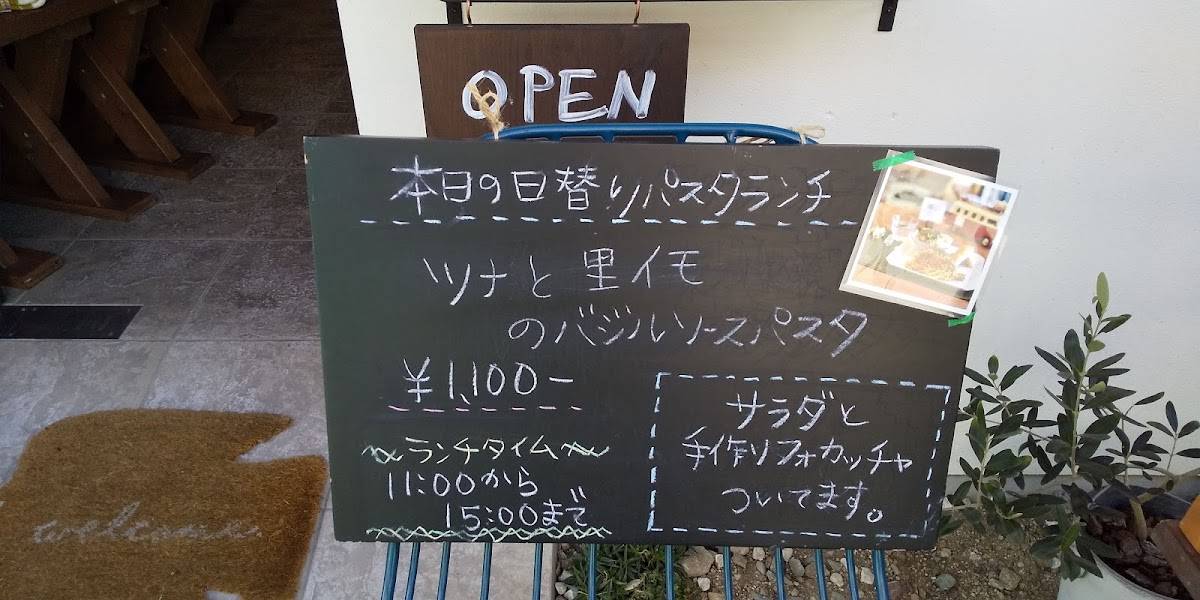 OPEN
本日の日替りパスタランチ
ツナと里イモ
のバジルソースパスタ
¥1,100ー
ランチタイム
11:00から
15:00まで
サラダと
手作りフォカッチャ
ついてます。
welcome